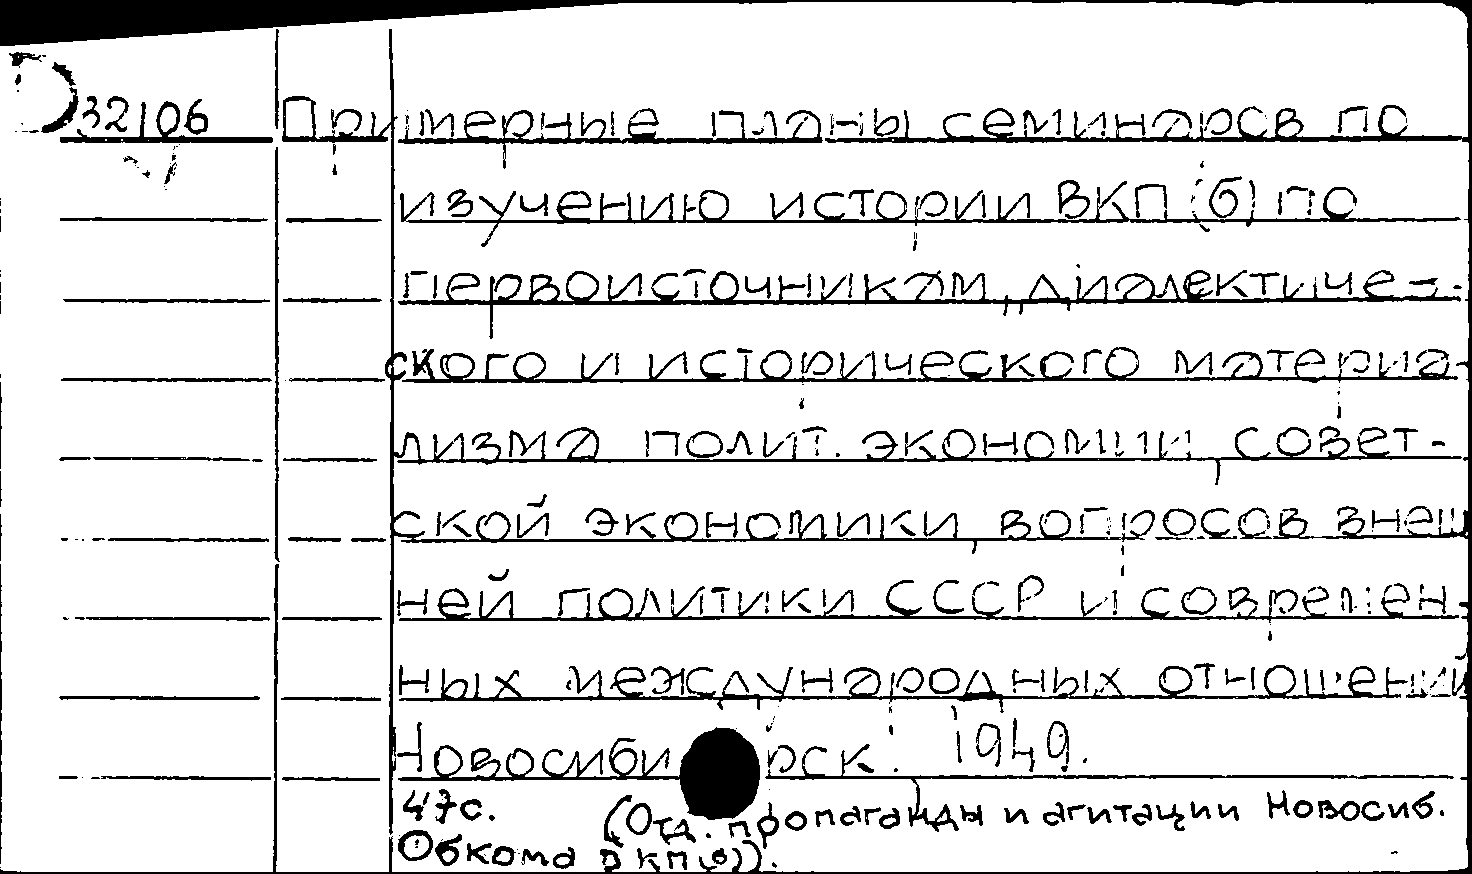 32106 Примерные планы семинаров по
изучению истории ВКП(б) по
первоисточникам, диалектиче-
ского и исторического материа-
лизма полит. экономии, совет-
ской экономики, вопросов внеш
ней политики СССР и современ-
ных международных отношений
Новосибирск. 1949.
47с. (Отд. пропаганды и агитации Новосиб.
Обкома ВКП(б)).